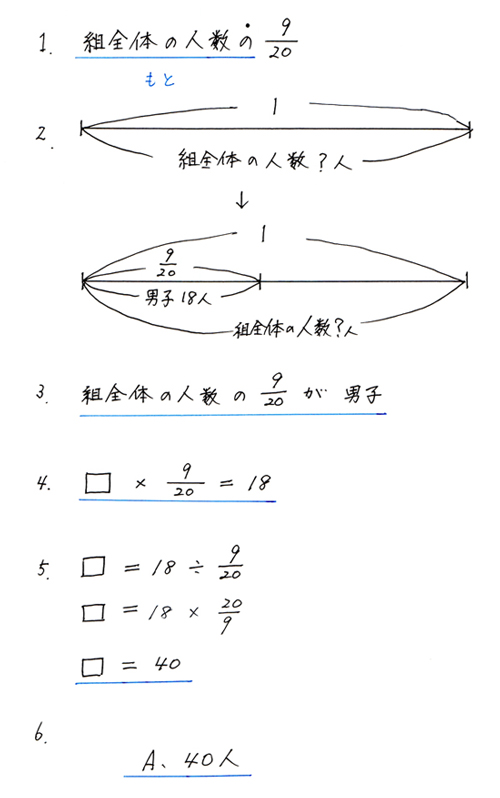 1. 組全体の人数の 9/20
もと
2.
1
組全体の人数?人
↓
1
9/20
男子18人
組全体の人数?人
3. 組全体の人数の 9/20 が 男子
4. □ × 9/20 = 18
5. □ = 18 ÷ 9/20
□ = 18 × 20/9
□ = 40
6.
A、40人